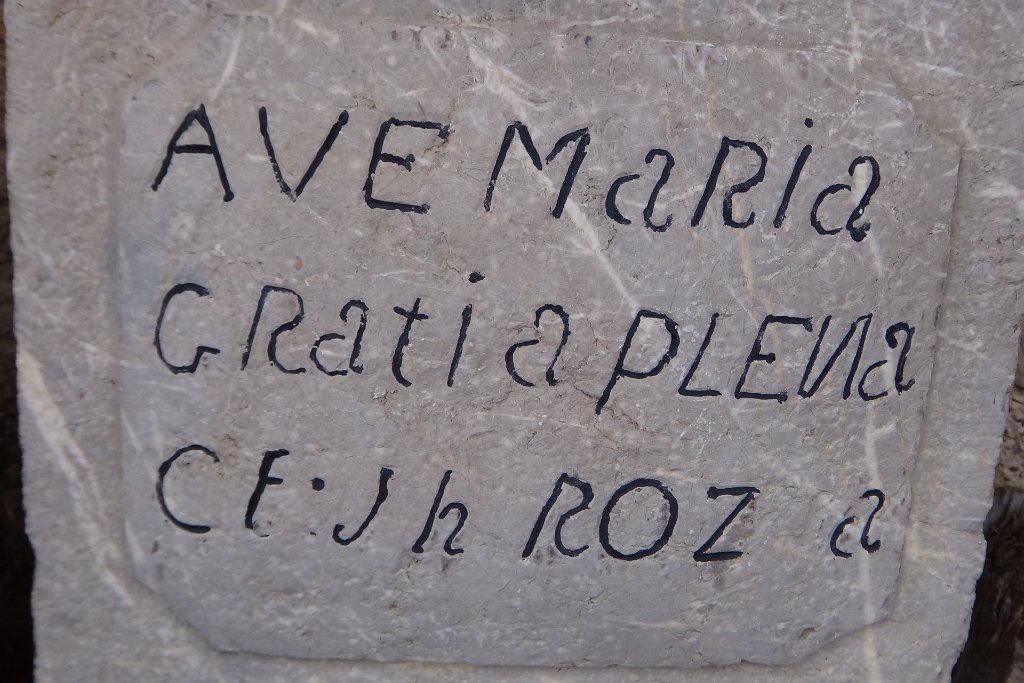 AVE MaRia
GRatia PLENa
CF·Jh ROZ a